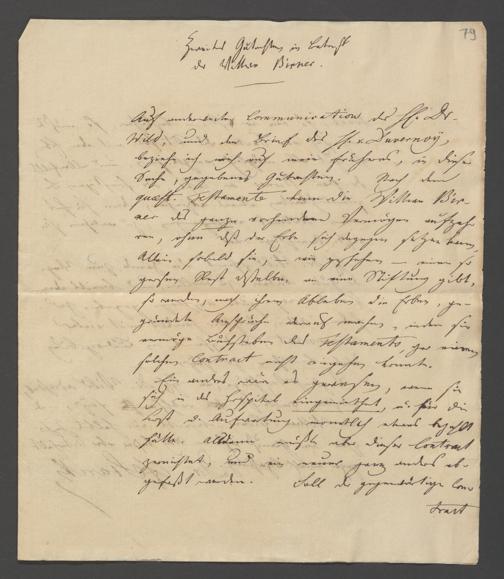 79
Zweites Gutachten in Betreff
der Wittwe Birner.
Auf anderweite Communication des H. Dr.
Wild, und den Brief des H. v. Duvernoy,
beziehe ich mich auf mein früheres, in dieser
Sache, gegebenes Gutachten. Nach dem
quaest. Testamente kann die Wittwe Bir-
ner das ganze vorhandene Vermögen aufzeh-
ren, ohne daß der Erbe sich dagegen setzen kann,
Allein sobald sie, – wie geschehen – einen so
großen Rest desselben an eine Stiftung gibt,
so werden, nach ihrem Ableben die Erben, ge-
gründete Ansprüche daraus machen, indem sie
vermöge Buchstaben des Testaments, gar einen
solchen Contract nicht eingehen konnte.
Ein anders wäre es gewesen, wenn sie
sich in das Hospital eingemiethet, u. für die
Kost u. Aufwartung monatlich etwas bezahlt
hätte. Alsdann müßte aber dieser Contract
zernichtet, und ein neuer ganz anders ab-
gefaßt werden. Soll der gegenwärtige Con-
tract